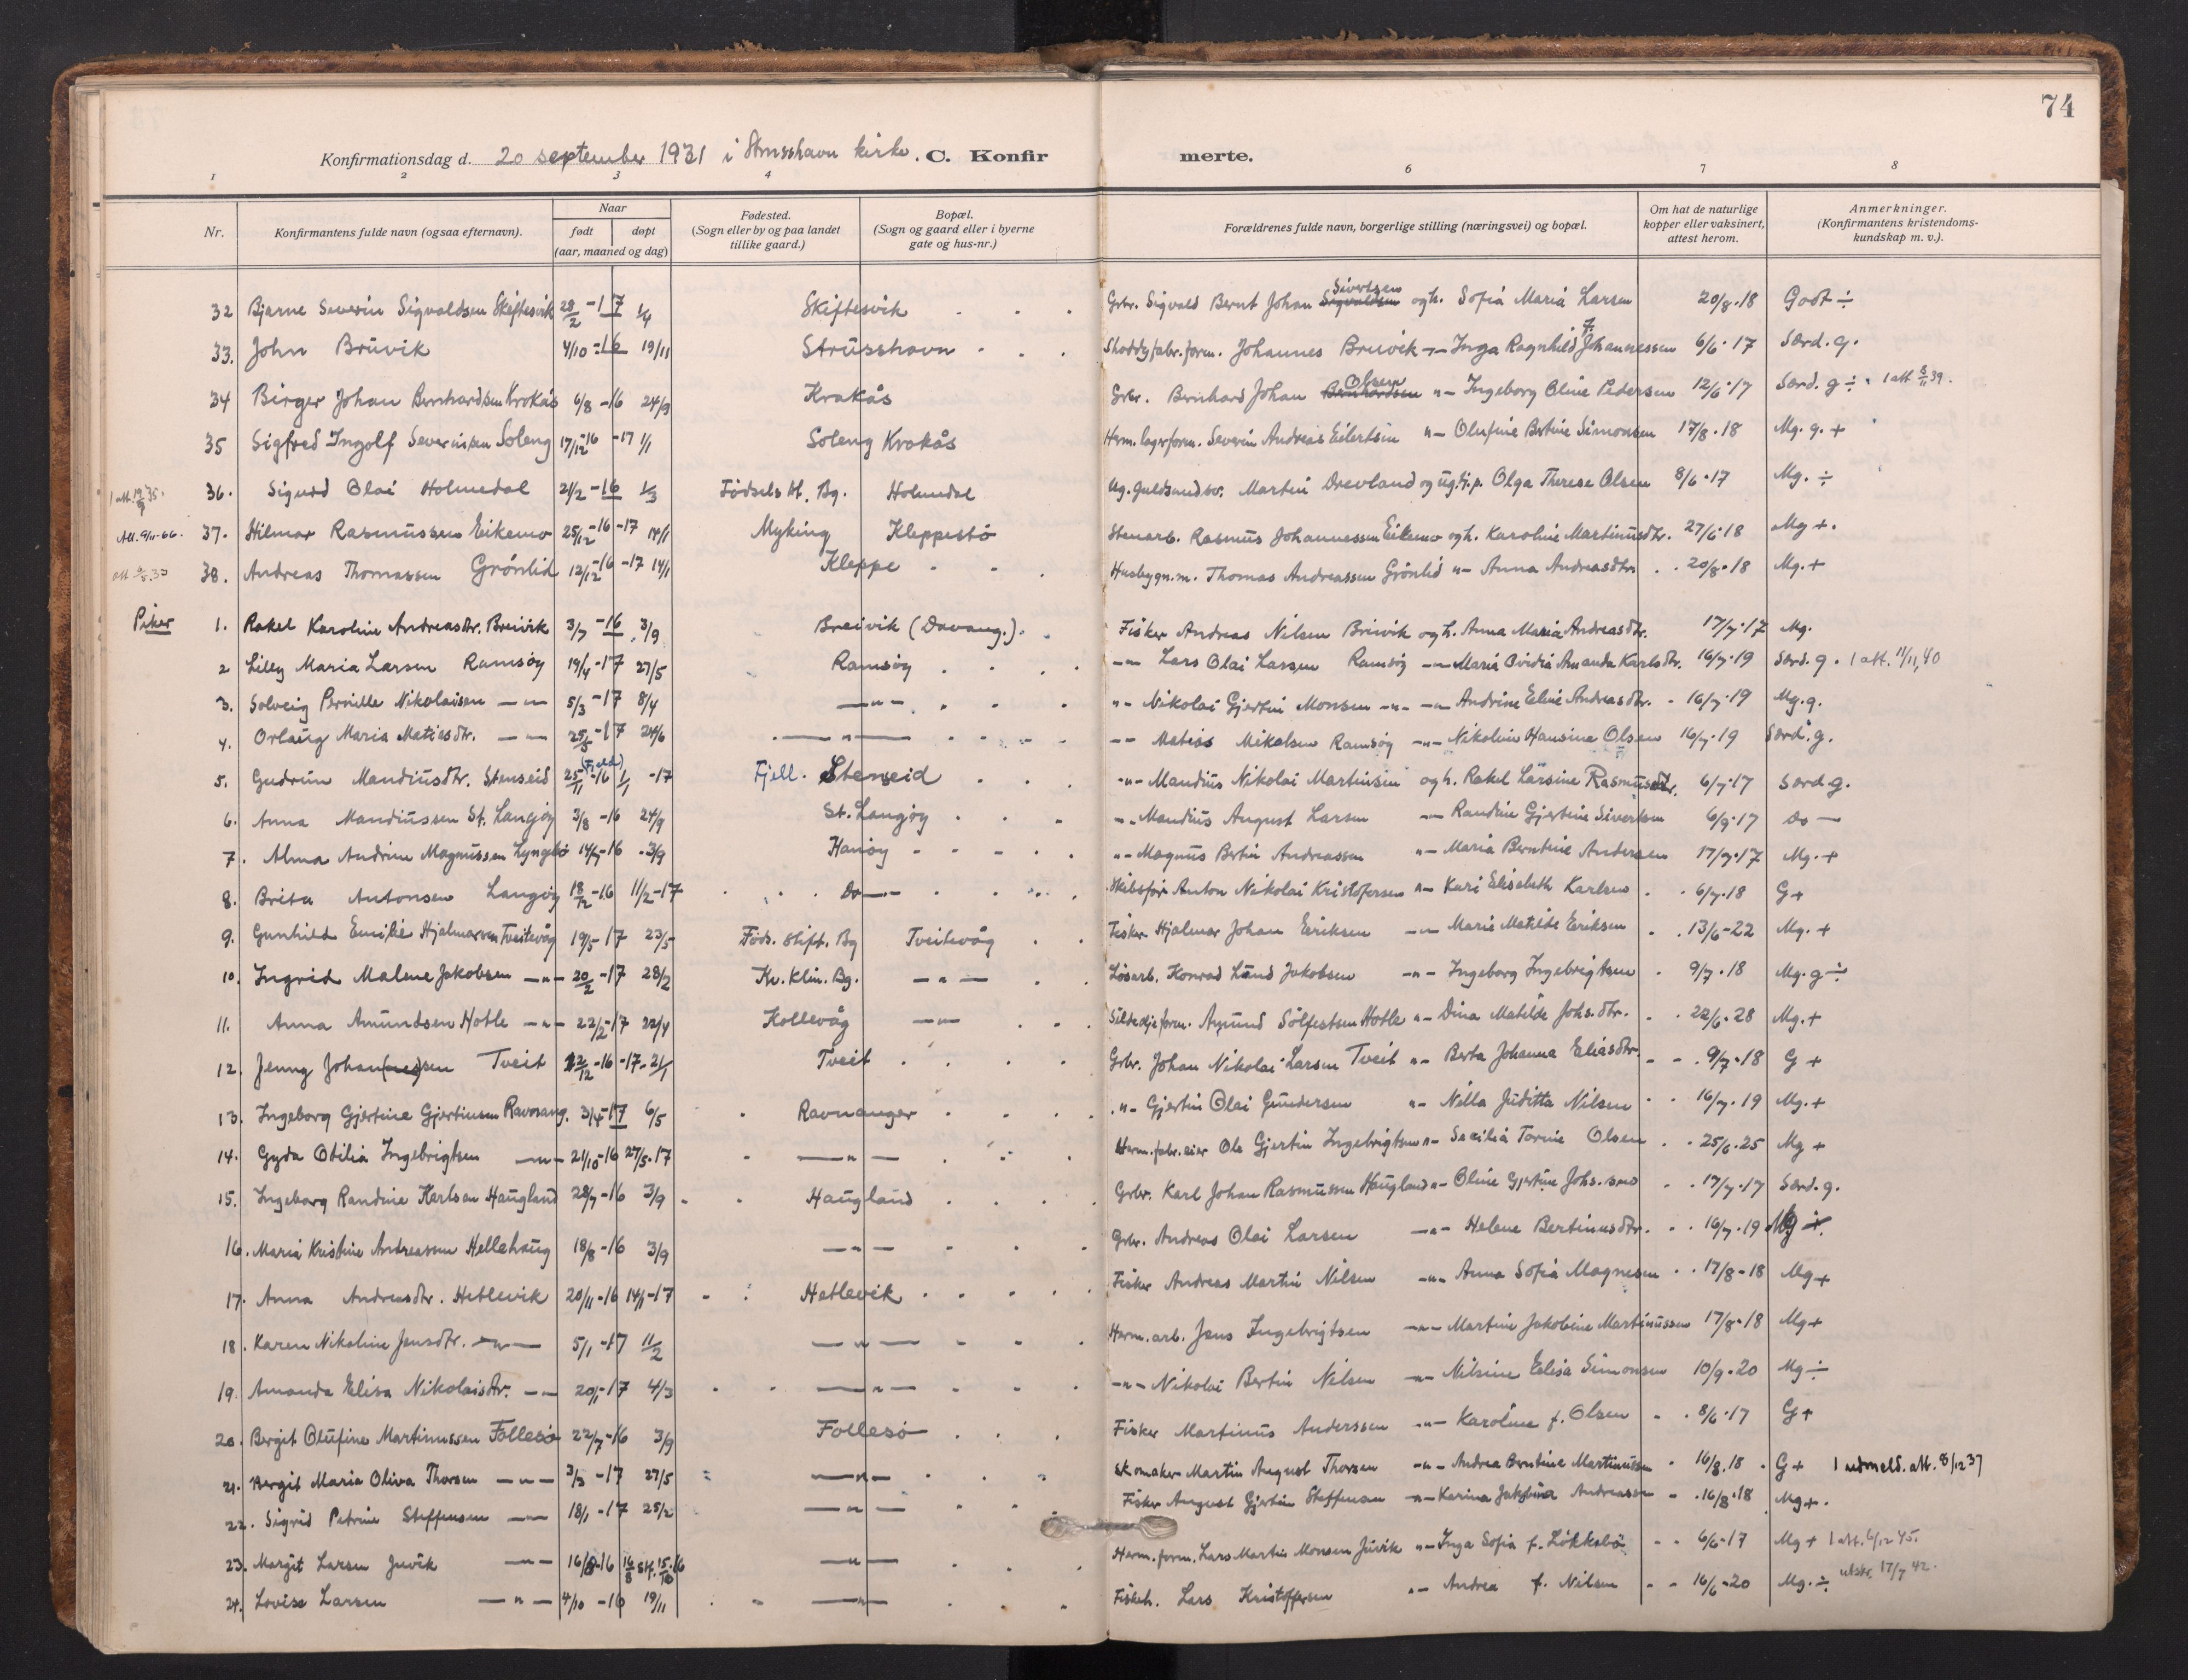 74
Konfirmationsdag d. 20 september 1931 i Strusshavn kirke. C. Konfirmerte.
1 2 3 4 6 7 8
Nr. Konfirmantens fulde navn (ogsaa efternavn). Naar født døpt (aar, maaned og dag) Fødested. (Sogn eller by og paa landet tillike gaard.) Bopæl. (Sogn og gaard eller i byerne gate og hus-nr.) Forældrenes fulde navn, borgerlige stilling (næringsvei) og bopæl. Om hat de naturlige kopper eller vaksinert, attest herom. Anmerkninger. (Konfirmantens kristendomskundskap m. v.).
32 Bjarne Severin Sigvaldsen Skiftesvik 28/2 -17 1/4 Skiftesvik Grbr. Sigvald Bernt Johan Sigvaldsen Sivertsen og h. Sofia Maria Larsen 20/8.18 Godt ÷
33. John Brüvik 4/10 -16 19/11 Strüsshavn Shoddyfabr.form. Johannes Bruvik -"- Inga Ragnhild f. Johannessen 6/6.17 Særd. g.
34 Birger Johan Bernhardsen Krokås 6/8 -16 24/9 Krakås Grbr. Bernhard Johan Bernhardsen Olsen "- Ingeborg Oline Pedersen 12/6.17 Særd. g ÷ 1 att. 8/11 39.
35 Sigfred Ingolf Severinsen Soleng 17/12 -16 -17 1/1 Soleng Krokås Herm. lagerform. Severin Andreas Eilertsen "- Olufine Bertine Simonsen 17/8.18 Mg. g. +
1 att. 35. 36. Sigurd Olai Holmedal 21/2 -16 1/3 Fødsels kl. Bg. Holmedal Ug. Guldsmedsv. Martin Drevland og ug. tj.p. Olga Therese Olsen 8/6.17 Mg. ÷
Att. 9/11-66. 37. Hilmar Rasmüssen Eikemo 25/12 -16 -17 14/1 Myking Kleppestö Stenarb. Rasmus Johannessen Eikemo og h. Karoline Martinusdtr. 27/6.18 Mg +.
38. Andreas Thomassen Grönlid 12/12 -16 -17 14/1 Kleppe Husbygn.m. Thomas Andreassen Grönlid "- Anna Andreasdtr. 20/8.18 Mg. +
Piker 1. Rakel Karoline Andreasdtr. Breivik 3/7 -16 3/9 Breivik (Davang.). Fisker Andreas Nilsen Breivik og h. Anna Maria Andreasdtr. 17/7.17 Mg.
2 Lilly Maria Larsen Ramsöy 19/4 -17 27/5 Ramsöy -"- Lars Olai Larsen Ramsöy -"- Maria Ovidia Amanda Karlsdtr. 16/7.19 Særd. g. 1 att. 11/11,40
3. Solveig Pernille Nikolaisen -"- 5/3 -17 8/4 -"- "- Nikolai Gjertin Monsen -"- Andrine Eline Andreasdtr. 16/7.19 Mg. g.
4. Orlaüg Maria Matiasdtr. -"- 25/5 -17 24/6 -"- -"- Matias Mikalsen Ramsöy -"- Nikoline Hansine Olsen 16/7.19 Særd. g.
5. Gudrün Mandiüsdtr. Stenseid 25/11 -16 (Fjeld) 1/1 -17 Fjell. Stenseid -"- Mandiüs Nikolai Martinsen og h. Rakel Larsine Rasmüsdtr. 6/7.17 Særd. g.
6. Anna Mandiüssen St. Langöy 3/8 -16 24/9 St. Langöy "- Mandiüs August Larsen -"- Randine Gjertine Sivertsen 6/9.17 do —
7. Alma Andrine Magnüssen Lyngbö 14/7 -16 3/9 Hanöy "- Magnüs Bertin Andreassen "- Maria Berntine Andersen 17/7.17 Mg. +
8. Brita Antonsen Langöy 18/12 -16 11/2 -17 Do Skibsför. Anton Nikolai Kristofersen "- Kari Elisabeth Karlsen 6/7.18 G +
9. Gunhild Emilie Hjalmarsen Tveitevåg 19/5 -17 23/5 Föds. stift. Bg Tveitevåg Fisker Hjalmar Johan Eriksen -"- Marie Matilde Eriksen 13/6-22 Mg. +
10. Ingrid Malene Jakobsen -"- 20/2 -17 28/2 Kv. Klin. Bg. -"- Løsarb. Konrad Lünd Jakobsen -"- Ingeborg Ingebrigtsen 9/7.18 Mg. g ÷
11. Anna Amündsen Hotle -"- 22/2 -17 22/4 Kollevåg -"- Sildeoljeform. Amünd Sölfestsen Hotle "- Dina Matilde Johs.dtr. 22/6.28 Mg. +
12. Jenny Johan(nes)sen Tveit 12/12 -16 -17- 21/1 Tveit Grbr. Johan Nikolai Larsen Tveit "- Berta Johanna Eliasdtr. 9/7.18 G +
13. Ingeborg Gjertine Gjertinsen Ravnang. 3/4 -17 6/5 Ravnanger "- Gjertin Olai Gündersen "- Nilla Jüditta Nilsen 16/7.19 Mg. +
14. Gyda Otilia Ingebrigtsen -"- 21/10 -16 27/5-17 -"- Herm.fabr.eier Ole Gjertin Ingebrigtsen "- Secilia Torine Olsen 25/6.25 Mg +
15. Ingeborg Randine Karlsen Haugland 28/7 -16 3/9 Haugland Grbr. Karl Johan Rasmüssen Haugland "- Oline Gjertine Johs.sen 17/7.17 Særd. g.
16. Maria Kristine Andreassen Hellehaüg 18/8 -16 3/9 -"- Grbr. Andreas Olai Larsen -"- Helene Bertinusdtr. 16/7.19 Mg ÷
17. Anna Andreasdtr. Hetlevik 20/11 -16 14/1 -17 Hetlevik Fisker Andreas Martin Nilsen -"- Anna Sofia Magnesen 17/8-18 Mg +
18. Karen Nikoline Jensdtr. -"- 5/1 -17 11/2 -"- Herm. arb. Jens Ingebrigtsen -"- Martine Jakobine Martinüssen 17/8.18 Mg +
19. Amanda Elisa Nikolaisdtr. -"- 20/1 -17 4/3 -"- -"- Nikolai Bertin Nilsen -"- Nilsine Elisa Simonsen 10/9.20 Mg ÷
20. Bergit Olüfine Martinussen Follesö 22/7 -16 3/9 Follesö Fisker Martinüs Anderssen -"- Karoline f. Olsen 8/6.17 G +
21. Bergit Maria Oliva Thorsen -"- 3/3 -17 27/5 -"- Skomaker Martin August Thorsen -"- Andrea Berntine Martinüssen 16/8.18 G + 1 utmeld. att. 8/12 37
22. Sigrid Petrine Steffensen -"- 18/1 -17 25/2 -"- Fisker August Gjertin Steffensen "- Karina Jakobina Andreassen 16/8.18 Mg +.
23. Margit Larsen Juvik -"- 16/8 -16 16/8 st. 15/10 -16 -"- Herm. form. Lars Martin Monsen Jüvik "- Inga Sofia f. Lökkebö 6/6-17 Mg + 1 att. 6/12 45.
24. Lovise Larsen -"- 4/10 -16 19/11 -"- Fiskeh. Lars Kristoffersen "- Andrea f. Nilsen 16/6-20 Mg. ÷ utskr. 17/7 42.